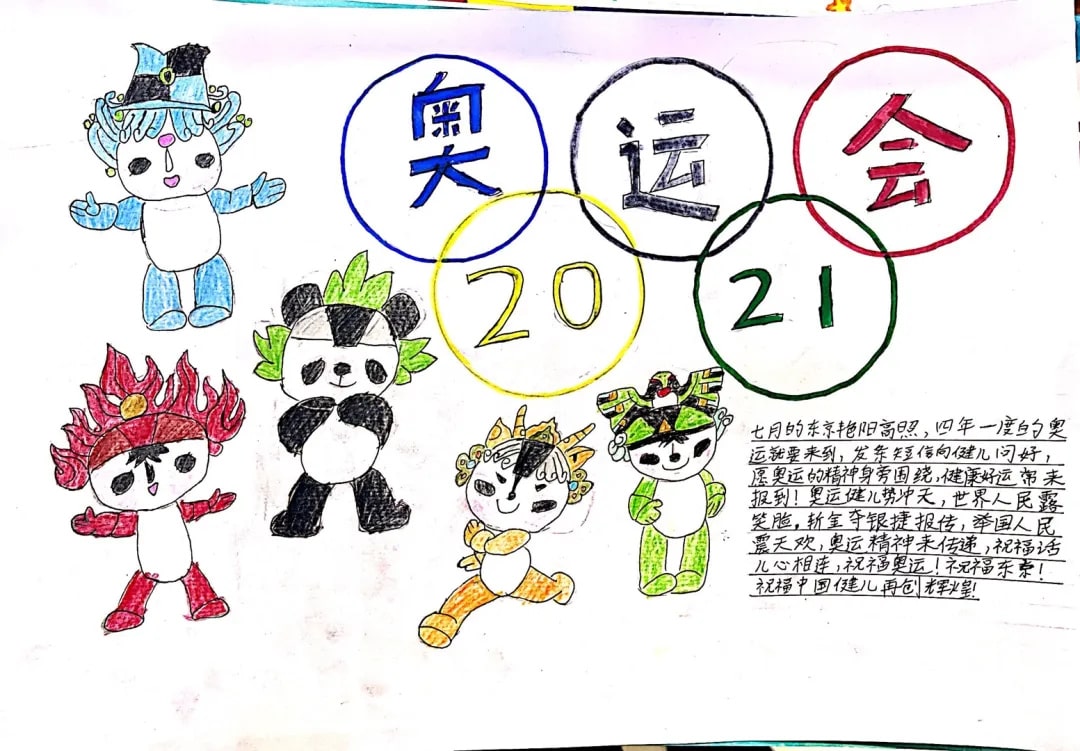 奥运会
2021
七月的东京艳阳高照，四年一度的奥
运就要来到，发条短信向健儿问好，
愿奥运的精神身旁围绕，健康好运常来
报到！奥运健儿势冲天，世界人民露
笑脸，斩金夺银捷报传，举国人民
震天欢，奥运精神来传递，祝福话
儿心相连，祝福奥运！祝福东京！
祝福中国健儿再创辉煌！